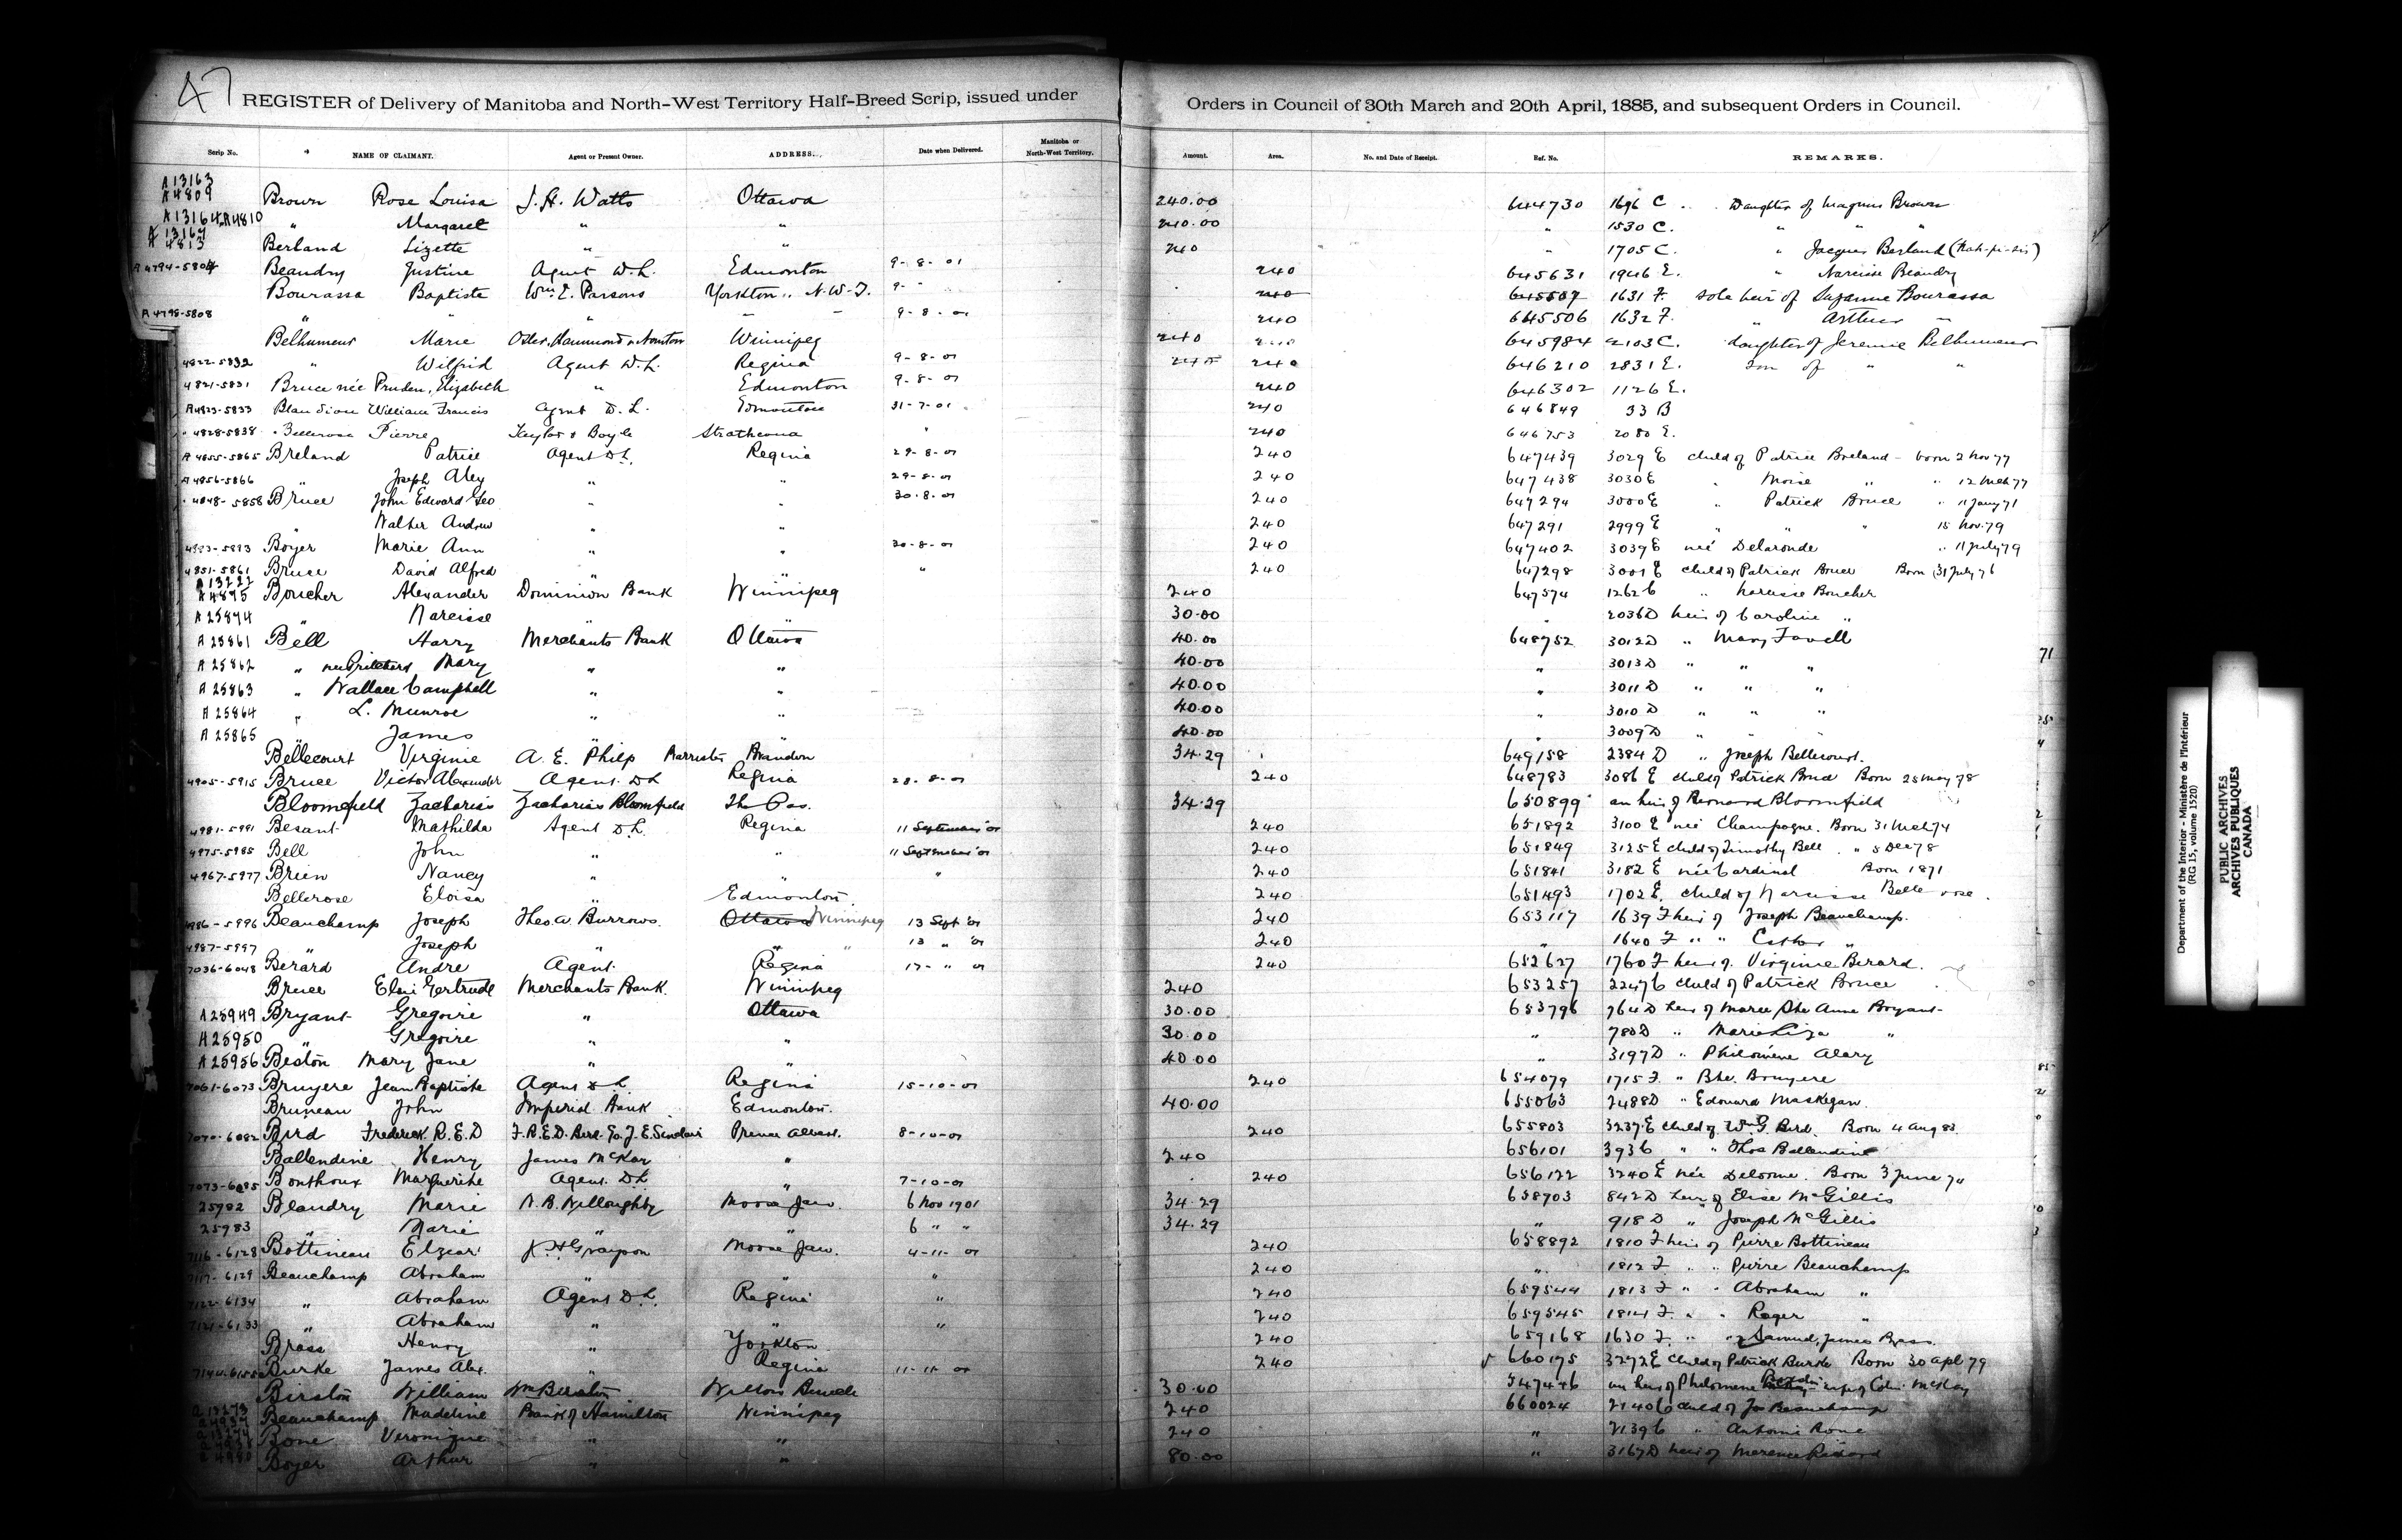 47
REGISTER of Delivery of Manitoba and North-West Territory Half-Breed Scrip, issued under Orders in Council of 30th March and 20th April, 1885, and subsequent Orders in Council.
Scrip No. NAME OF CLAIMANT. Agent or Present Owner. ADDRESS. Date when Delivered. Manitoba or North-West Territory. Amount. Area. No. and Date of Receipt. Ref. No. REMARKS.
A 13163
A 4809 Brown Rose Louisa J. H. Watts Ottawa 240.00 644730 1696 C. Daughter of Magnus Brown
A 13164 A 4810 " Margaret " " 240.00 " 1530 C. " " "
A 13167
A 4813 Berland Lizette " " 240 " 1705 C. " Jacques Berland (Nah-pi-sis)
A 4794-5804 Beaudry Justine Agent D. L. Edmonton 9-8-01 240 645631 1946 E. " Narcisse Beaudry
Bourassa Baptiste Wm. E. Parsons Yorkton, N.W.T. 9- " 240 645507 1631 F. sole heir of Suzanne Bourassa
A 4798-5808 " " " " 9-8-01 240 645506 1632 F. " Arthur "
Belhumeur Marie Osler, Hammond & Nanton Winnipeg 240 645984 2103 C. daughter of Jeremie Belhumeur
4822-5832 " Wilfrid Agent D. L. Regina 9-8-01 240 240 646210 2831 E. son of " "
4821-5831 Bruce née Pruden, Elizabeth " Edmonton 9-8-01 240 646302 1126 E.
A 4823-5833 Blandion William Francis Agent D. L. Edmonton 31-7-01 240 646849 33 B
" 4828-5838 Bellerose Pierre Taylor & Boyle Strathcona " 240 646753 2080 E.
A 4855-5865 Breland Patrice Agent D L. Regina 29-8-01 240 647439 3029 E child of Patrice Breland - born 2 Nov 77
A 4856-5866 " Joseph Alex " " 29-8-01 240 647438 3030 E " Moise " " 12 Mch 77
" 4848-5858 Bruce John Edward Geo " " 30-8-01 240 647294 3000 E " Patrick Bruce " 11 Jany 71
" Walter Andrew " " 240 647291 2999 E " " " 15 Nov. 79
4883-5893 Boyer Marie Ann " " 30-8-01 240 647402 3039 E née Delaronde " 11 July 79
4851-5861 Bruce David Alfred " " " 240 647298 3001 E child of Patrick Bruce Born 31 July 76
A 13222
A 4895 Boucher Alexander Dominion Bank Winnipeg 240 647574 1262 C " Narcisse Boucher
A 25844 " Narcisse " " 30.00 " 2036 D heir of Caroline "
A 25861 Bell Harry Merchants Bank Ottawa 40.00 648752 3012 D " Mary Favell
A 25862 " Mary " " 40.00 " 3013 D " " "
A 25863 " Wallace Campbell " " 40.00 " 3011 D " " "
A 25864 " L. Munroe " " 40.00 " 3010 D " " "
A 25865 " James " " 40.00 " 3009 D " " "
Bellecourt Virginie A. E. Philp Barrister Brandon 34.29 649158 2384 D " Joseph Bellecourt.
4905-5915 Bruce Victor Alexander Agent D L Regina 28-8-01 240 648783 3086 E child of Patrick Bruce Born 25 May 78
Bloomfield Zacharias Zacharias Bloomfield The Pas. 34.29 650899 an heir of Bernard Bloomfield
4981-5991 Besant Mathilda Agent D L. Regina 11 September '01 240 651892 3100 E née Champagne. Born 31 Mch 74
4975-5985 Bell John " " 11 September '01 240 651849 3125 E child of Timothy Bell " 5 Dec 78
4967-5977 Brien Nancy " " " 240 651841 3182 E née Cardinal Born 1871
Bellerose Eloisa " Edmonton. 240 651493 1702 E. child of Narcisse Bellerose.
4986-5996 Beauchamp Joseph Theo. A. Burrows. Ottawa Winnipeg 13 Sept '01 240 653117 1639 F heir of Joseph Beauchamp.
4987-5997 " Joseph " " " 13 " '01 240 " 1640 F " " Esther "
7036-6048 Berard Andre Agent. Regina 17- " 01 240 652627 1760 F heir of. Virginie Berard.
Bruce Elsie Gertrude Merchants Bank. Winnipeg 240 653257 2247 C child of Patrick Bruce
A 25949 Bryant Gregoire " Ottawa 30.00 653796 764 D heir of Marie Ste Anne Bryant
A 25950 " Gregoire " " 30.00 " 780 D " Marie Liza "
A 25956 Beston Mary Jane " " 40.00 " 3197 D " Philomène Alary
7061-6073 Bruyere Jean Baptiste Agent D L Regina 15-10-01 240 654079 1715 F. " Bte. Bruyere
Bruneau John Imperial Bank Edmonton. 40.00 655063 2488 D " Edouard Maskegan.
7070-6082 Bird Frederick. R. E. D F. R. E. D. Bird. Co. J. E. Sinclair Prince Albert. 8-10-01 240 655803 3237 E child of Wm G. Bird. Born 4 Aug 83.
Ballendine Henry James McKay " 240 656101 393 C " " Thos Ballendine
7073-6085 Bonthoux Marguerite Agent. D L " 7-10-01 240 656122 3240 E née Delorme. Born 3 June 74
25982 Blandry Marie N. B. Willoughby Moose Jaw. 6 Nov 1901 34.29 658703 842 D heir of Elise McGillis
25983 " Marie " " 6 " " 34.29 " 918 D " Joseph McGillis
7116-6128 Bottineau Elzear Grayson Moose Jaw. 4-11-01 240 658892 1810 F heir of Pierre Bottineau
7117-6129 Beauchamp Abraham " " " 240 " 1812 F " " Pierre Beauchamp
7122-6134 " Abraham Agent D L. Regina " 240 659544 1813 F " " Abraham "
7121-6133 " Abraham " " " 240 659545 1814 F. " " Roger "
Brass Henry " Yorkton. 240 659168 1630 F. " " Samuel James Brass.
7144-6155 Burke James Alex. " Regina 11-11-01 240 660175 3272 E child of Patrick Burke Born 30 Apl 79
Birston William Wm Birston Willow Bunch 30.00 547446 an heir of Philomene wife of Colin McKay
A 13273
A 4937 Beauchamp Madeline Bank of Hamilton Winnipeg 240 660024 2140 C child of Jos Beauchamp
Bone Veronique " " 240 " 2139 C " Antoine Bone
Boyer Arthur " " 80.00 " 3167 D heir of
71
Department of the Interior - Ministère de l'Intérieur
(RG 15, volume 1520)
PUBLIC ARCHIVES
ARCHIVES PUBLIQUES
CANADA